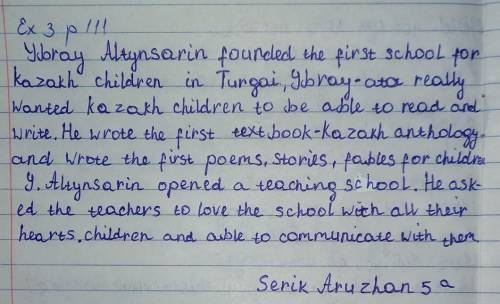 Ex 3 p 111
Ybray Altynsarin founded the first school for
kazakh children in Turgai, Ybray-ata really
wanted kazakh children to be able to read and
write. He wrote the first textbook-kazakh anthology
and wrote the first poems, stories, fables for childre
Y. Altynsarin opened a teaching school. He ask-
ed the teachers to love the school with all their
hearts. children and able to communicate with them
Serik Aruzhan 5 a